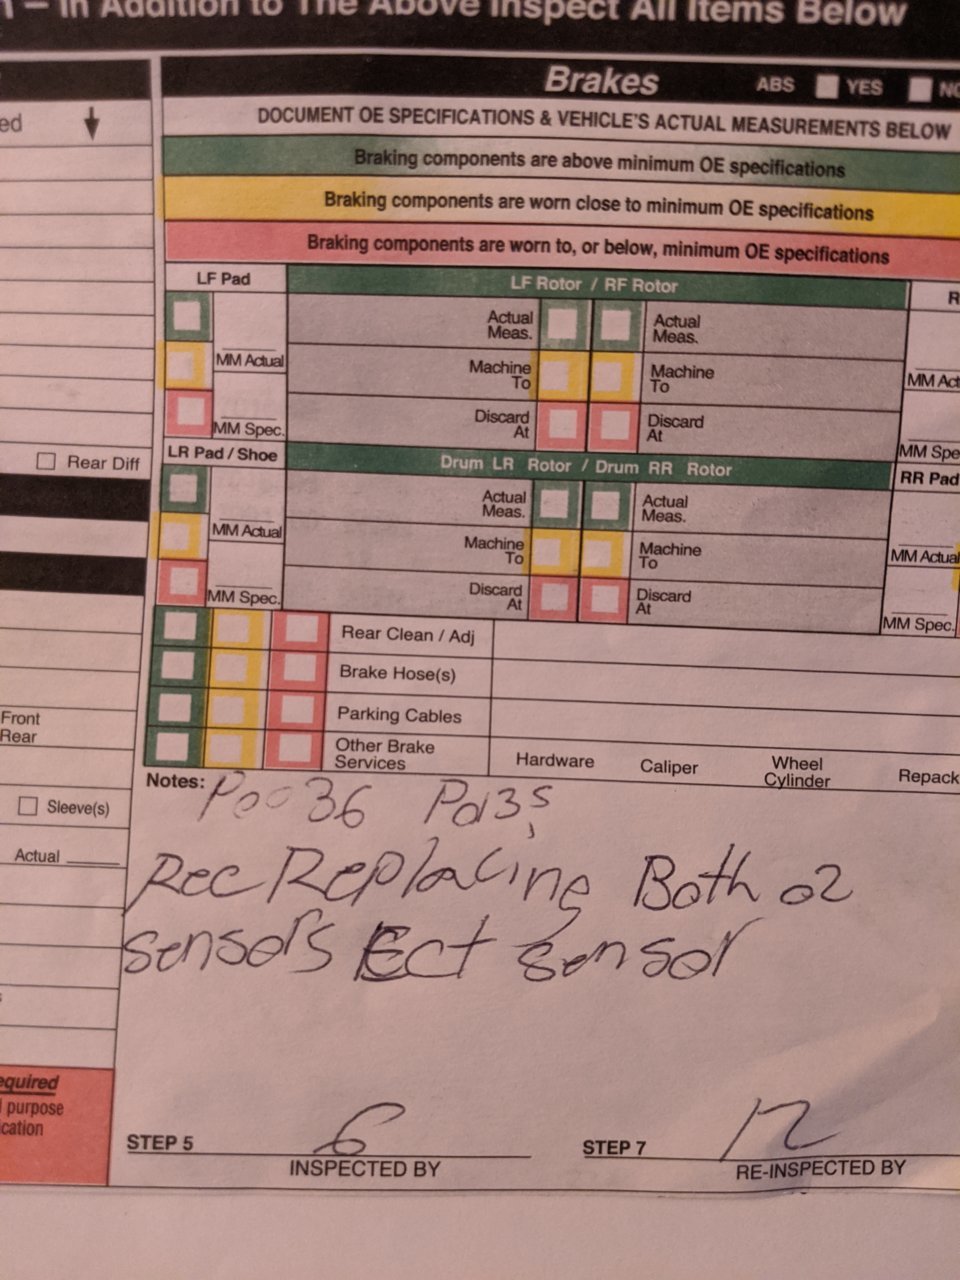 In Addition to The Above Inspect All Items Below
Brakes ABS YES NO
DOCUMENT OE SPECIFICATIONS & VEHICLE'S ACTUAL MEASUREMENTS BELOW
Braking components are above minimum OE specifications
Braking components are worn close to minimum OE specifications
Braking components are worn to, or below, minimum OE specifications
LF Pad
LF Rotor / RF Rotor
Actual Meas.
Actual Meas.
MM Actual
Machine To
Machine To
MM Act
MM Spec.
Discard At
Discard At
MM Spe
Rear Diff
LR Pad / Shoe
Drum LR Rotor / Drum RR Rotor
RR Pad
Actual Meas.
Actual Meas.
MM Actual
Machine To
Machine To
MM Actual
MM Spec.
Discard At
Discard At
MM Spec.
Rear Clean / Adj
Brake Hose(s)
Front
Rear
Parking Cables
Other Brake Services
Hardware Caliper Wheel Cylinder Repack
Sleeve(s)
Actual
Notes: P0036 P0135
Rec Replacing Both o2
sensors Ect sensor
equired
purpose
cation
STEP 5 6
INSPECTED BY
STEP 7 12
RE-INSPECTED BY